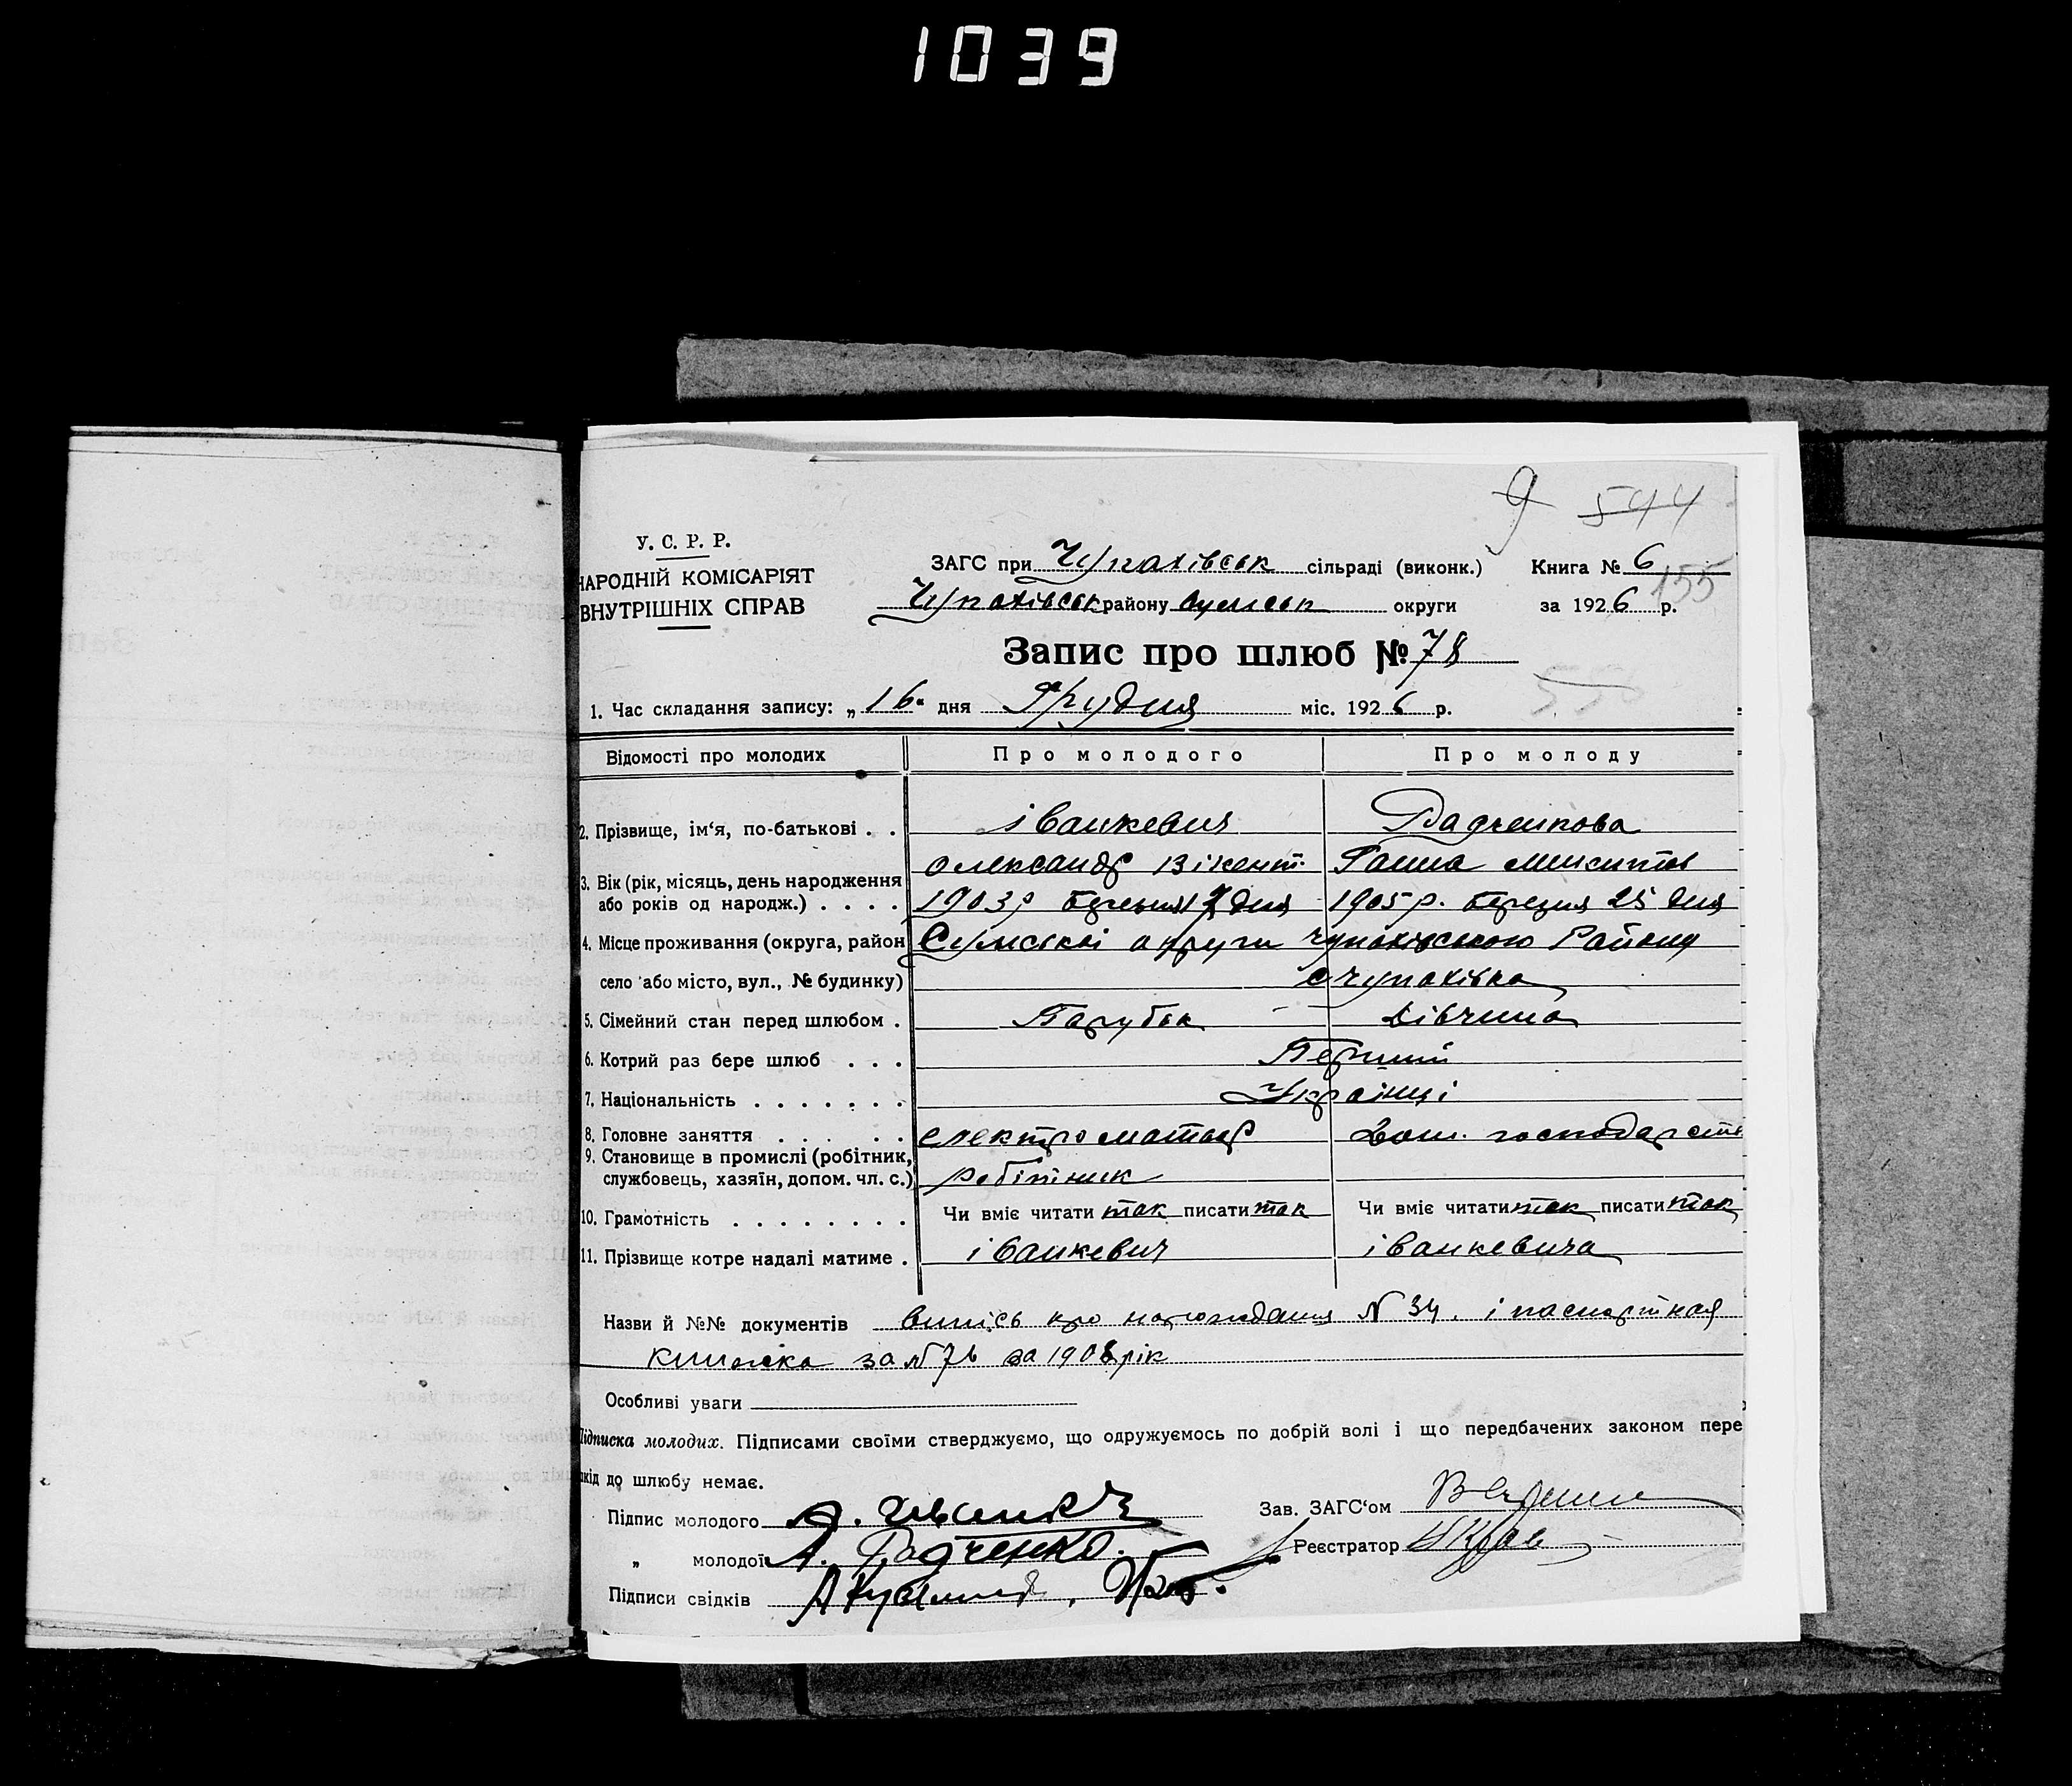 1039
9 544
У. С. Р. Р.
НАРОДНІЙ КОМІСАРІЯТ
ВНУТРІШНІХ СПРАВ
ЗАГС при Чупахівськ сільраді (виконк.) Книга № 6
155
Чупахівськ району Сумськ округи за 1926 р.
Запис про шлюб № 78
550
1. Час складання запису: „16“ дня Грудня міс. 1926 р.
Відомості про молодих Про молодого Про молоду
2. Прізвище, ім‘я, по-батькові . . іванкевич Радченкова
олександр Вікент. Ганна Микитов
3. Вік (рік, місяць, день народження
або років од народж.) . . . . 1903р березня 17 дня 1905р. березня 25 дня
4. Місце проживання (округа, район Сумської округи чупахівського Району
село або місто, вул., № будинку) с чупахівка
5. Сімейний стан перед шлюбом . Парубок Дівчина
6. Котрий раз бере шлюб . . . Перший
7. Національність . . . . . . . Українці
8. Головне заняття . . . . . . електроматьор Дом. господарств
9. Становище в промислі (робітник,
службовець, хазяїн, допом. чл. с.) робітник
10. Грамотність . . . . . . . . Чи вміє читати так писати так Чи вміє читати так писати так
11. Прізвище котре надалі матиме . іванкевич іванкевича
Назви й №№ документів випісь про народження N 34. і паспортная
книжка за N 76 за 1908 рік
Особливі уваги
Підписка молодих. Підписами своїми стверджуємо, що одружуємось по добрій волі і що передбачених законом пере
шкід до шлюбу немає.
Підпис молодого А. Зав. ЗАГС‘ом
„ молодої А. Радченко. Реєстратор
Підписи свідків